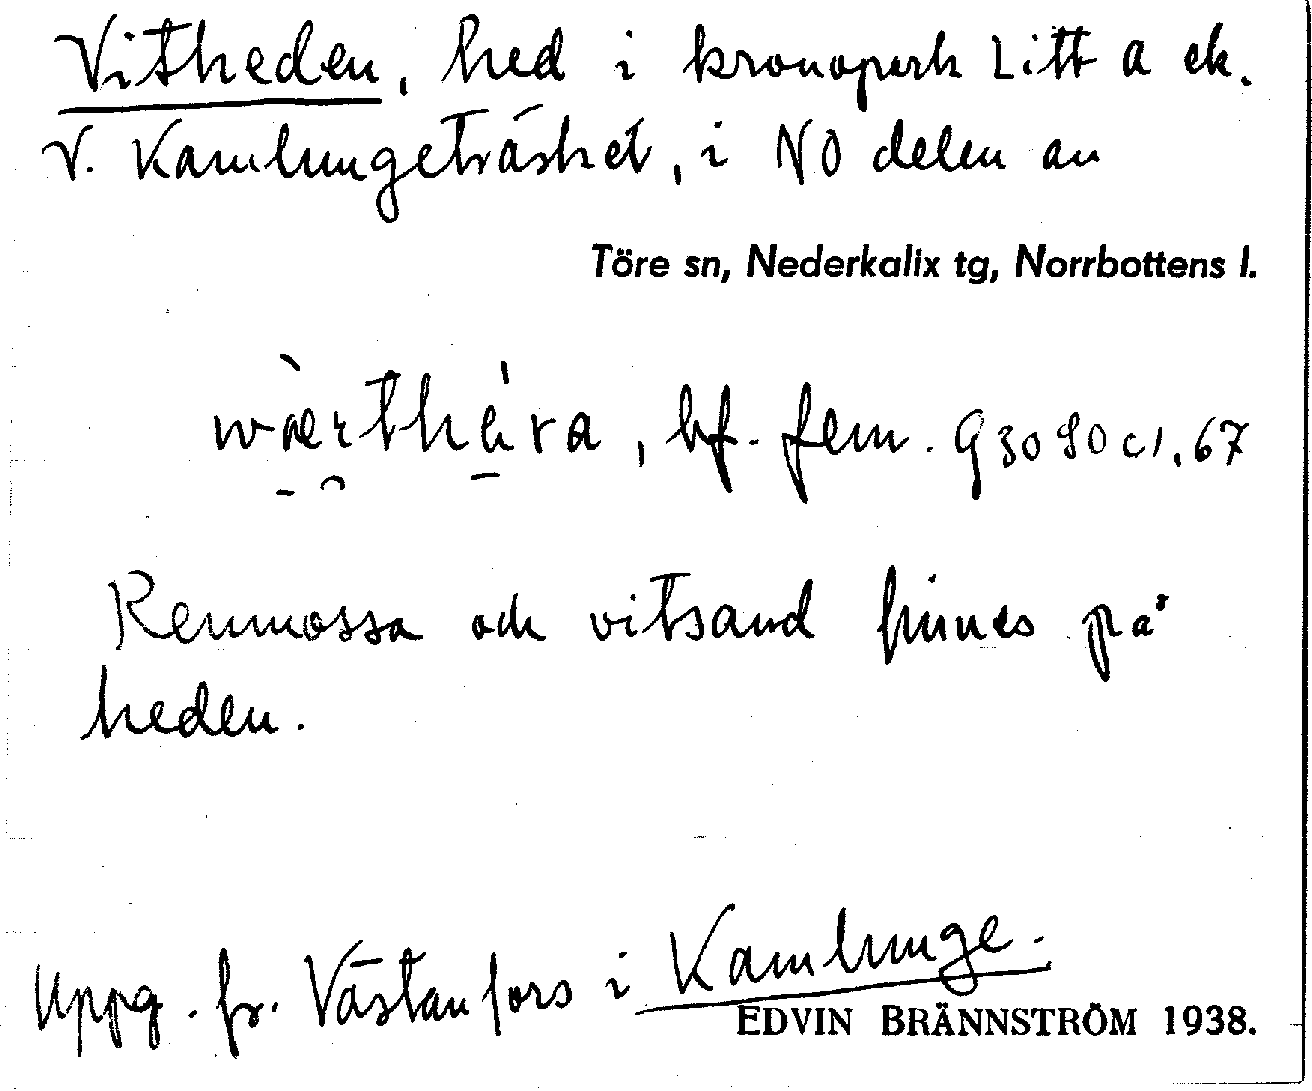 Vitheden, hed i kronopark Litt a ek.
V. Kamlungeträsket, i NO delen av
Töre sn, Nederkalix tg, Norrbottens l.
bf. fem.
Renmossa och vitsand finnes på
heden.
Uppg. fr. Västanfors i Kamlunge.
EDVIN BRÄNNSTRÖM 1938.